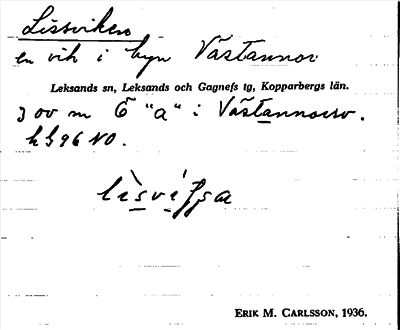 Lissviken
en vik i byn Västannor
Leksands sn, Leksands och Gagnefs tg, Kopparbergs län.
3 ov m Ö "a" i Västannorsv.
h b 96 NO.
ERIK M. CARLSSON, 1936.